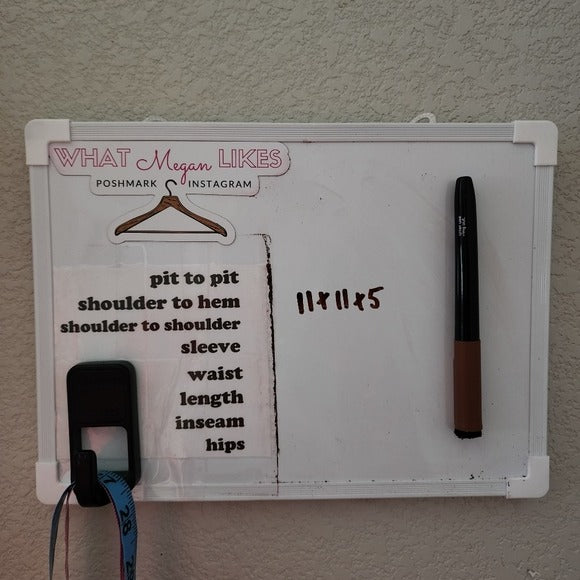 WHAT Megan LIKES
POSHMARK INSTAGRAM
pit to pit
shoulder to hem
shoulder to shoulder
sleeve
waist
length
inseam
hips
11x11x5
28